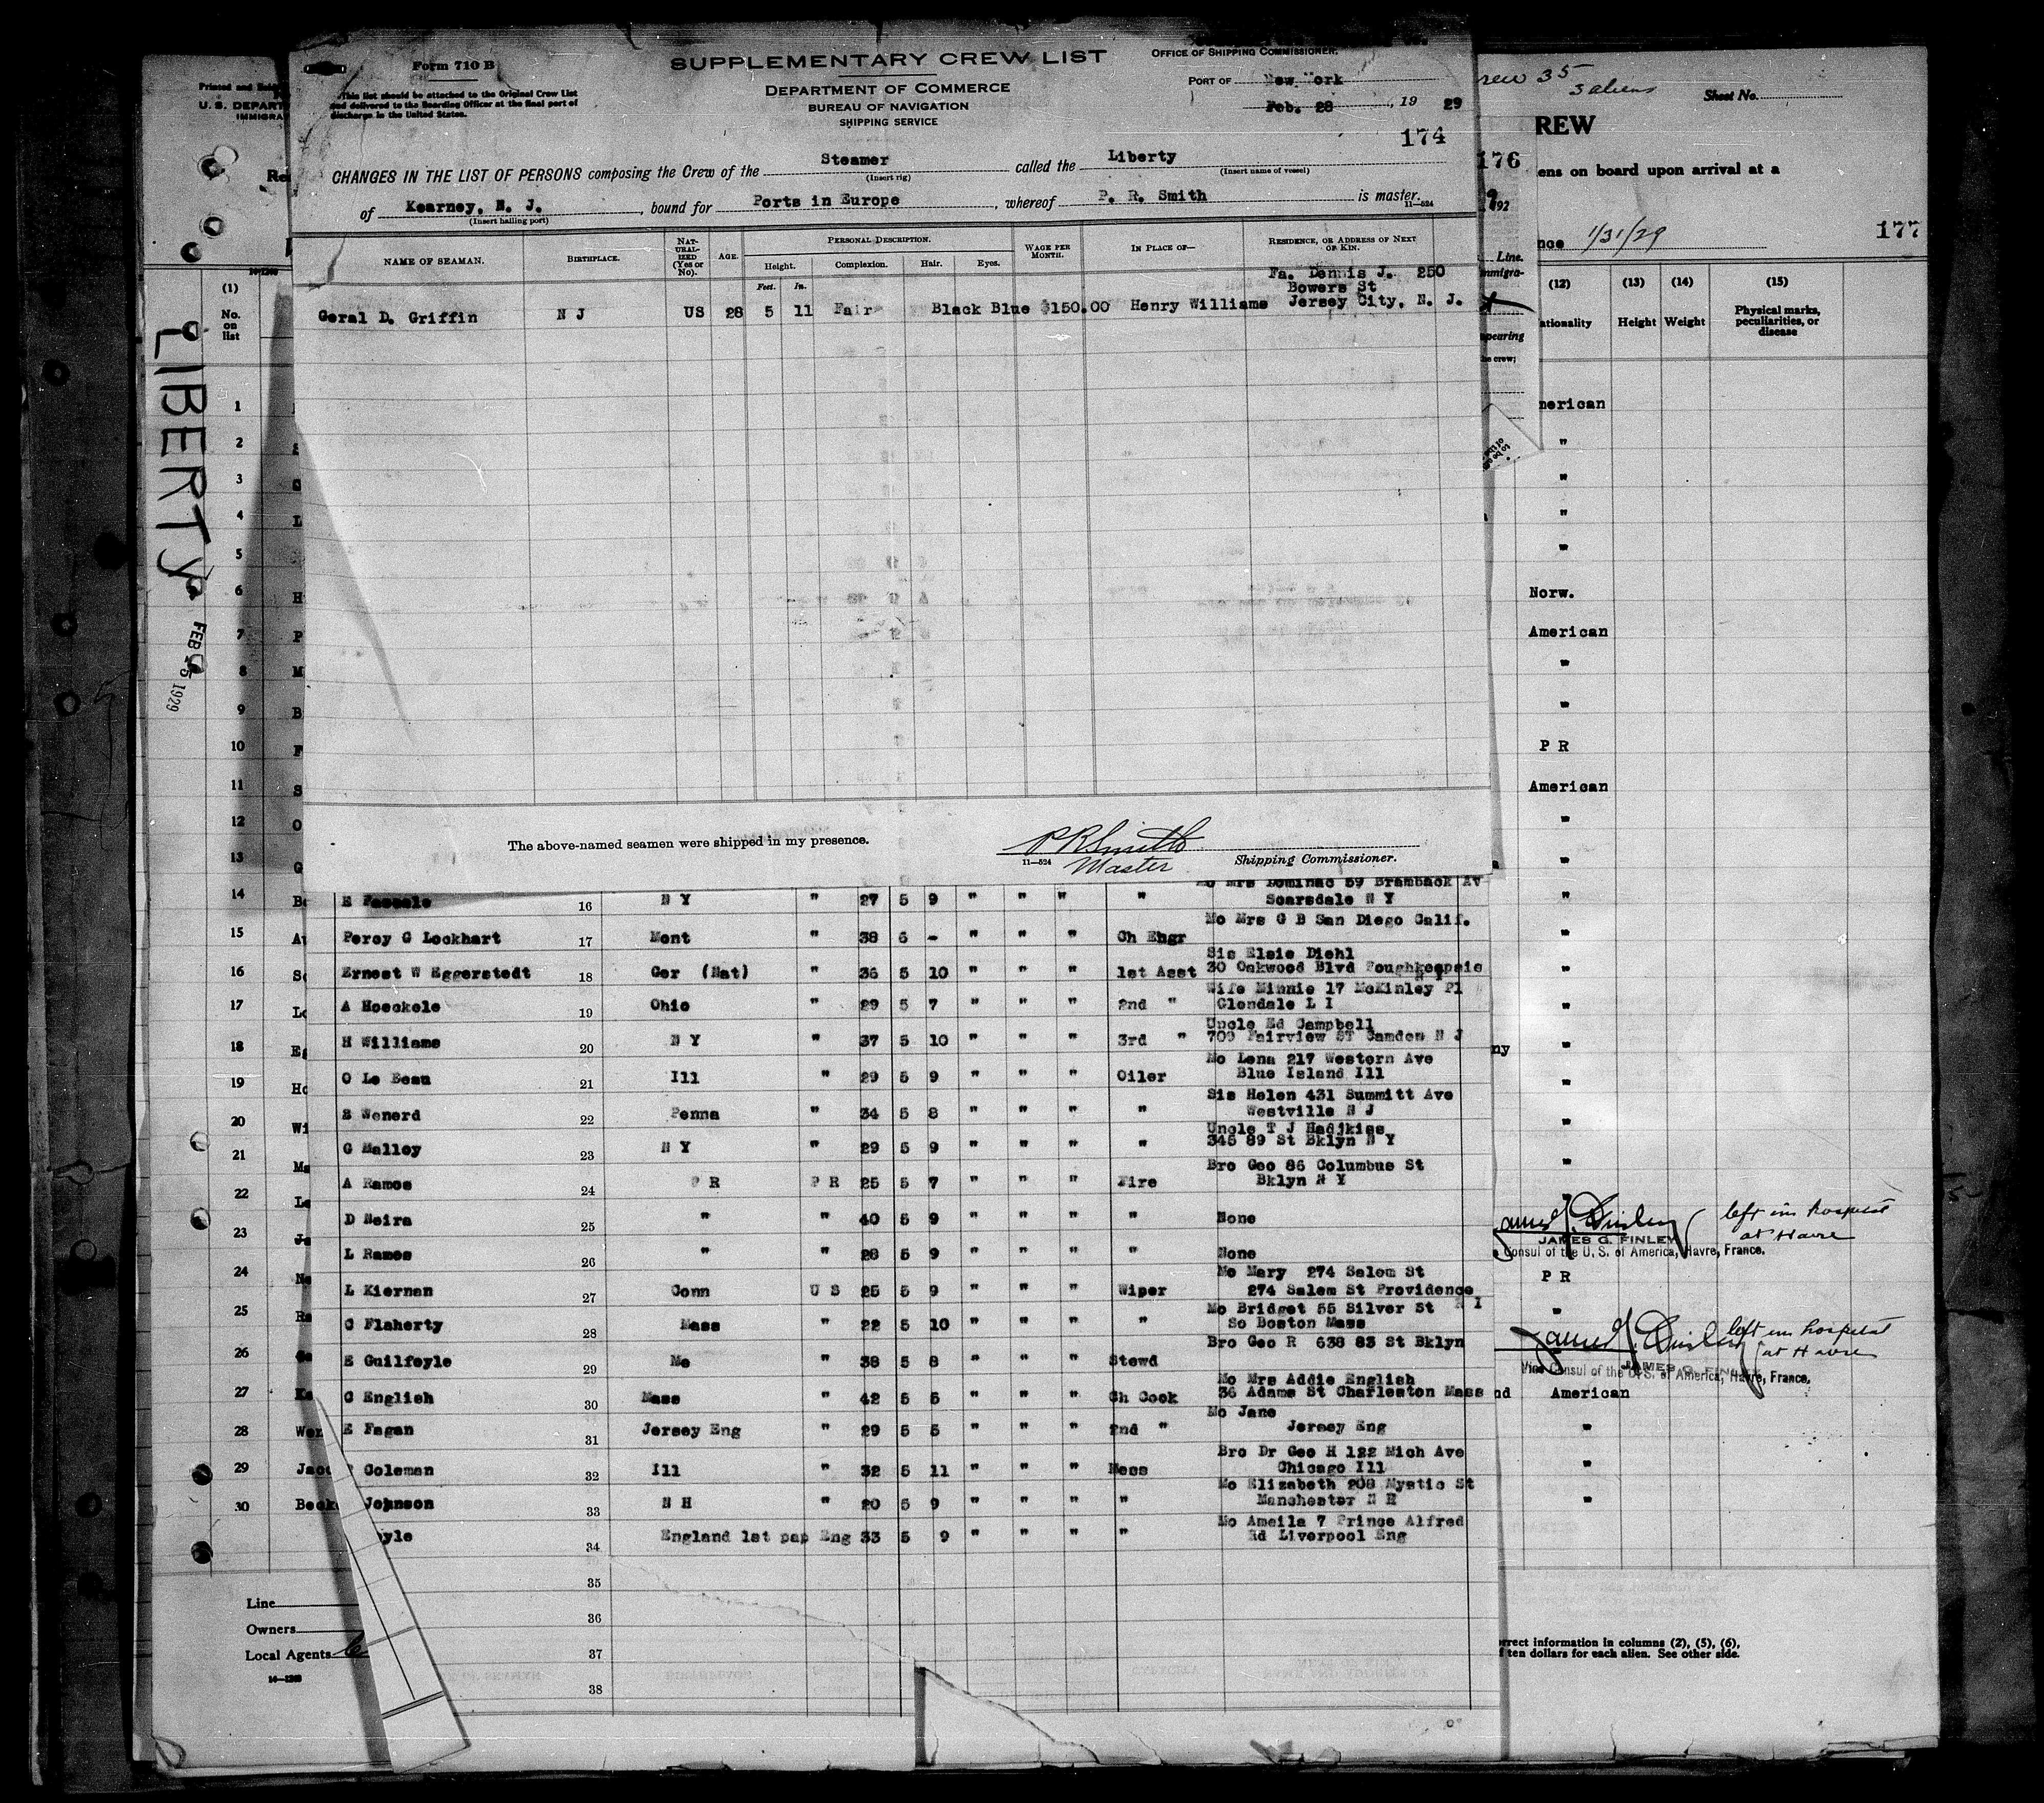 Form 710 B
This list should be attached to the Original Crew List
and delivered to the Boarding Officer at the final port of
discharge in the United States.
SUPPLEMENTARY CREW LIST
DEPARTMENT OF COMMERCE
BUREAU OF NAVIGATION
SHIPPING SERVICE
OFFICE OF SHIPPING COMMISSIONER.
PORT OF New York
Feb. 28, 19 29
174
CHANGES IN THE LIST OF PERSONS composing the Crew of the Steamer called the Liberty
(Insert rig) (Insert name of vessel)
of Kearney, N. J., bound for Ports in Europe, whereof P. R. Smith is master.
(Insert hailing port) 11—524
NAME OF SEAMAN. BIRTHPLACE. NAT-URAL-IZED (Yes or No). AGE. PERSONAL DESCRIPTION. WAGE PER MONTH. IN PLACE OF— RESIDENCE, OR ADDRESS OF NEXT OF KIN.
Height. Complexion. Hair. Eyes.
Feet. In.
Fa. Dennis J. 250
Bowers St
Geral D. Griffin N J US 28 5 11 Fair Black Blue $150.00 Henry Williams Jersey City, N. J.
The above-named seamen were shipped in my presence.
P R Smith
Master
11—524 Shipping Commissioner.
Scarsdale N Y
E 16 N Y " 27 5 9 " " " "
Mo Mrs G B San Diego Calif.
Percy G Lockhart 17 Mont " 38 6 - " " " Ch Engr
Sis Elsie Diehl
Ernest W Eggerstedt 18 Ger (Nat) " 36 5 10 " " " 1st Asst 30 Oakwood Blvd Poughkeepsie
Wife Minnie 17 McKinley Pl
A Hoeckele 19 Ohio " 29 5 7 " " " 2nd " Glendale L I
Uncle Ed Campbell
H Williams 20 N Y " 37 5 10 " " " 3rd " 709 Fairview ST Camden N J
Mo Lena 217 Western Ave
O Le Beau 21 Ill " 29 5 9 " " " Oiler Blue Island Ill
Sis Helen 431 Summitt Ave
B Wenerd 22 Penna " 34 5 8 " " " " Westville N J
Uncle T J Hadjkiss
G Malloy 23 N Y " 29 5 9 " " " " 345 89 St Bklyn N Y
Bro Geo 86 Columbus St
A Ramos 24 P R P R 25 5 7 " " " Fire Bklyn N Y
D Neira 25 " " 40 5 9 " " " " None
L Ramos 26 " " 28 5 9 " " " " None
Mo Mary 274 Salem St
L Kiernan 27 Conn U S 25 5 9 " " " Wiper 274 Salem St Providence R I
Mo Bridget 55 Silver St
C Flaherty 28 Mass " 22 5 10 " " " " So Boston Mass
Bro Geo R 638 83 St Bklyn
E Guilfoyle 29 Me " 38 5 8 " " " Stewd
Mo Mrs Addie English
C English 30 Mass " 42 5 5 " " " Ch Cook 36 Adams St Charleston Mass
Mo Jane
E Fagan 31 Jersey Eng " 29 5 5 " " " 2nd " Jersey Eng
Bro Dr Geo H 122 Mich Ave
Coleman 32 Ill " 32 5 11 " " " Mess Chicago Ill
Mo Elizabeth 208 Mystic St
Johnson 33 N H " 20 5 9 " " " " Manchester N H
Mo Ameila 7 Prince Alfred
yle 34 England 1st pap Eng 33 5 9 " " " " Rd Liverpool Eng
35
36
37
38
U. S. DEPART
IMMIGRA
(1)
No.
on
list
LIBERTY
FEB 25 1929
1
2
3
4
5
6
7
8
9
10
11
12
13
14
15
16
17
18
19
20
21
22
23
24
25
26
27
28
29
30
Line
Owners
Local Agents
14—1268
rew 35
3 aliens
Sheet No.
REW
176
ens on board upon arrival at a
192
nce 1/31/29
177
Line.
mmigra-
(12) (13) (14) (15)
ationality Height Weight Physical marks, peculiarities, or disease
pearing
he crew;
merican
"
"
"
"
Norw.
American
"
"
P R
American
"
"
"
"
"
"
ny "
"
"
"
left in hospital
at Havre
JAMES G. FINLEY
Consul of the U. S. of America, Havre, France.
P R
"
left in hospital
at Havre
JAMES G. FINLEY
Vice Consul of the U. S. of America, Havre, France.
nd American
"
"
"
rrect information in columns (2), (5), (6),
f ten dollars for each alien. See other side.